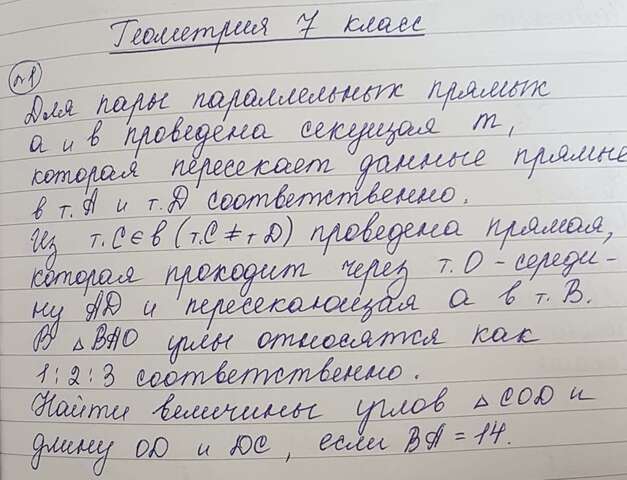 Геометрия 7 класс
№1
Для пары параллельных прямых
а и в проведена секущая m,
которая пересекает данные прямые
в т. А и т. D соответственно.
Из т. С ∈ в (т. С ≠ т D) проведена прямая,
которая проходит через т. О - середи-
ну AD и пересекающая а в т. В.
В △ВАО углы относятся как
1:2:3 соответственно.
Найти величины углов △COD и
длину OD и DC, если ВА = 14.